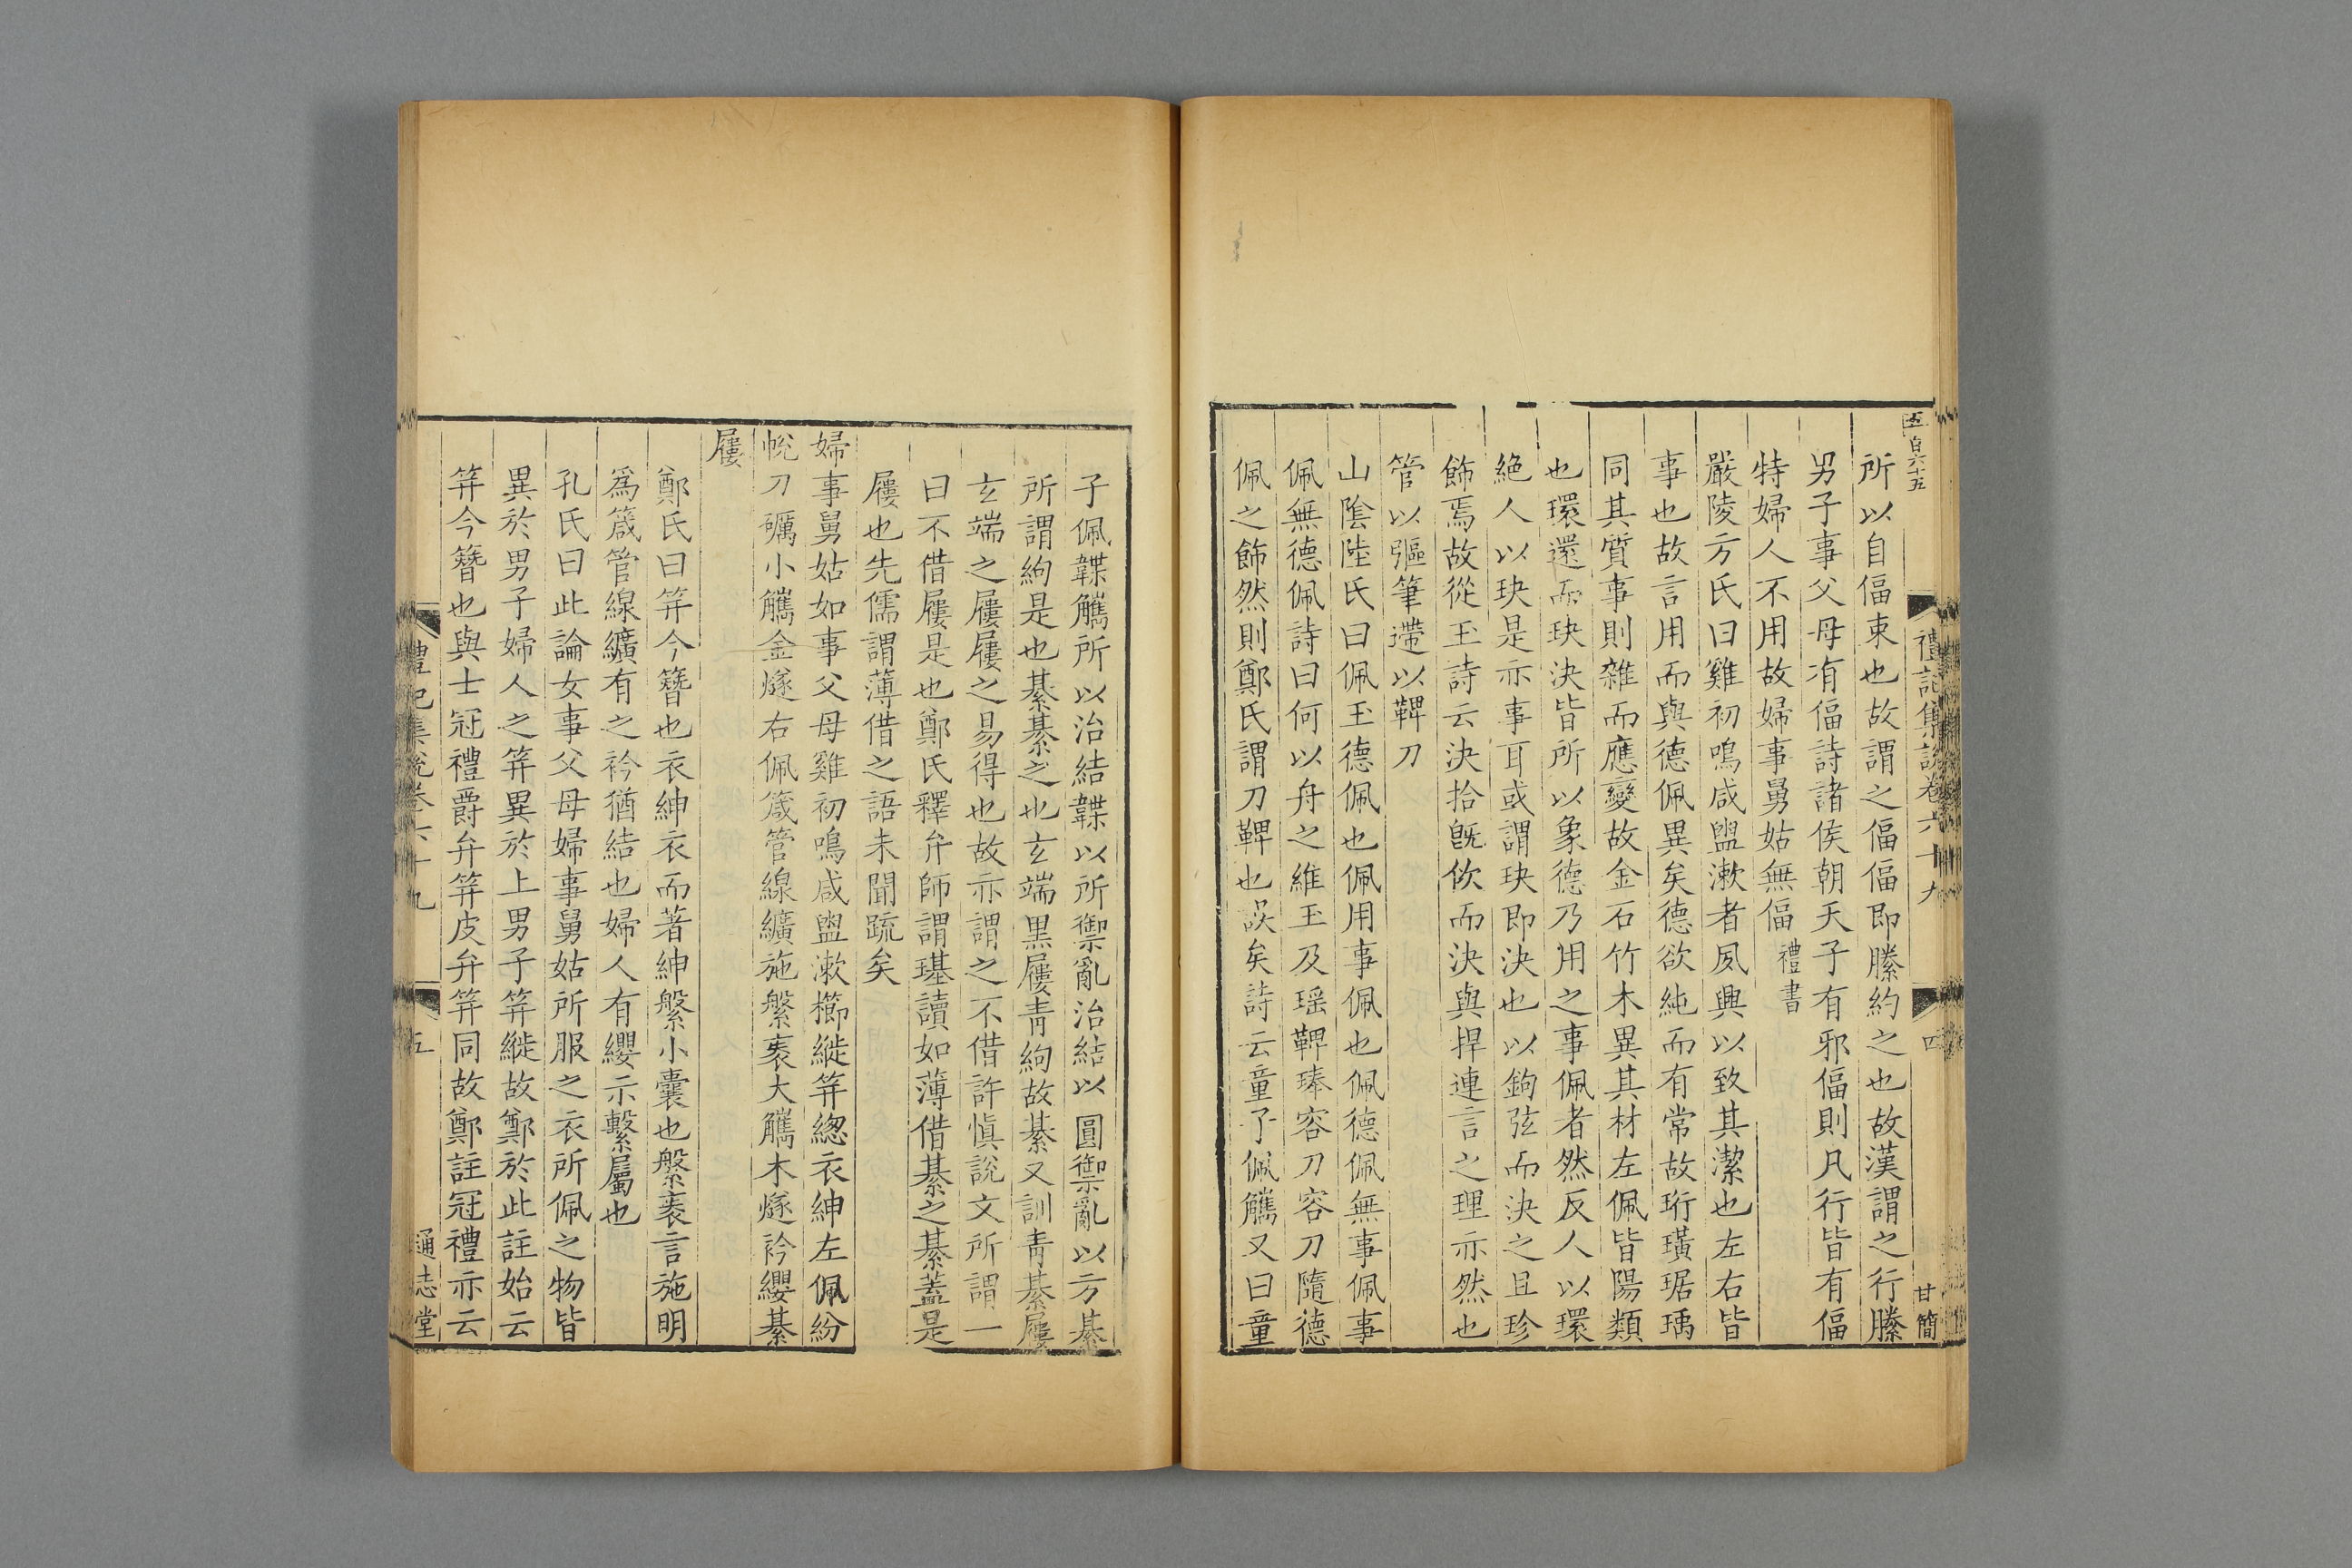 五百六十五
禮記集說卷六十九
四
甘簡
所以自偪束也故謂之偪偪即縢約之也故漢謂之行縢
男子事父母有偪詩諸侯朝天子有邪偪則凡行皆有偪
特婦人不用故婦事舅姑無偪禮書
嚴陵方氏曰雞初鳴咸盥漱者夙興以致其潔也左右皆
事也故言用而與德佩異矣德欲純而有常故珩璜琚瑀
同其質事則雜而應變故金石竹木異其材左佩皆陽類
也環還而玦決皆所以象德乃用之事佩者然反人以環
絶人以玦是亦事耳或謂玦即決也以鉤弦而決之且珍
飾焉故從玉詩云決拾旣佽而決與捍連言之理亦然也
管以彄筆遰以鞞刀
山陰陸氏曰佩玉德佩也佩用事佩也佩德佩無事佩事
佩無德佩詩曰何以舟之維玉及瑶鞞琫容刀容刀隨德
佩之飾然則鄭氏謂刀鞞也誤矣詩云童子佩觿又曰童
子佩韘觿所以治結韘以所禦亂治結以圓禦亂以方綦
所謂絇是也綦綦之也玄端黒屨青絇故綦又訓青綦屨
玄端之屨屨之易得也故亦謂之不借許愼說文所謂一
曰不借屨是也鄭氏釋弁師謂璂讀如薄借綦之綦蓋是
屨也先儒謂薄借之語未聞䟽矣
婦事舅姑如事父母雞初鳴咸盥漱櫛縰笄緫衣紳左佩紛
帨刀礪小觿金燧右佩箴管線纊施縏袠大觿木燧衿纓綦
屨
鄭氏曰笄今簪也衣紳衣而著紳縏小囊也縏袠言施明
爲箴管線纊有之衿猶結也婦人有纓示繫屬也
孔氏曰此論女事父母婦事舅姑所服之衣所佩之物皆
異於男子婦人之笄異於上男子笄縰故鄭於此註始云
笄今簪也與士冠禮爵弁笄皮弁笄同故鄭註冠禮亦云
禮記集說卷六十九
五
通志堂